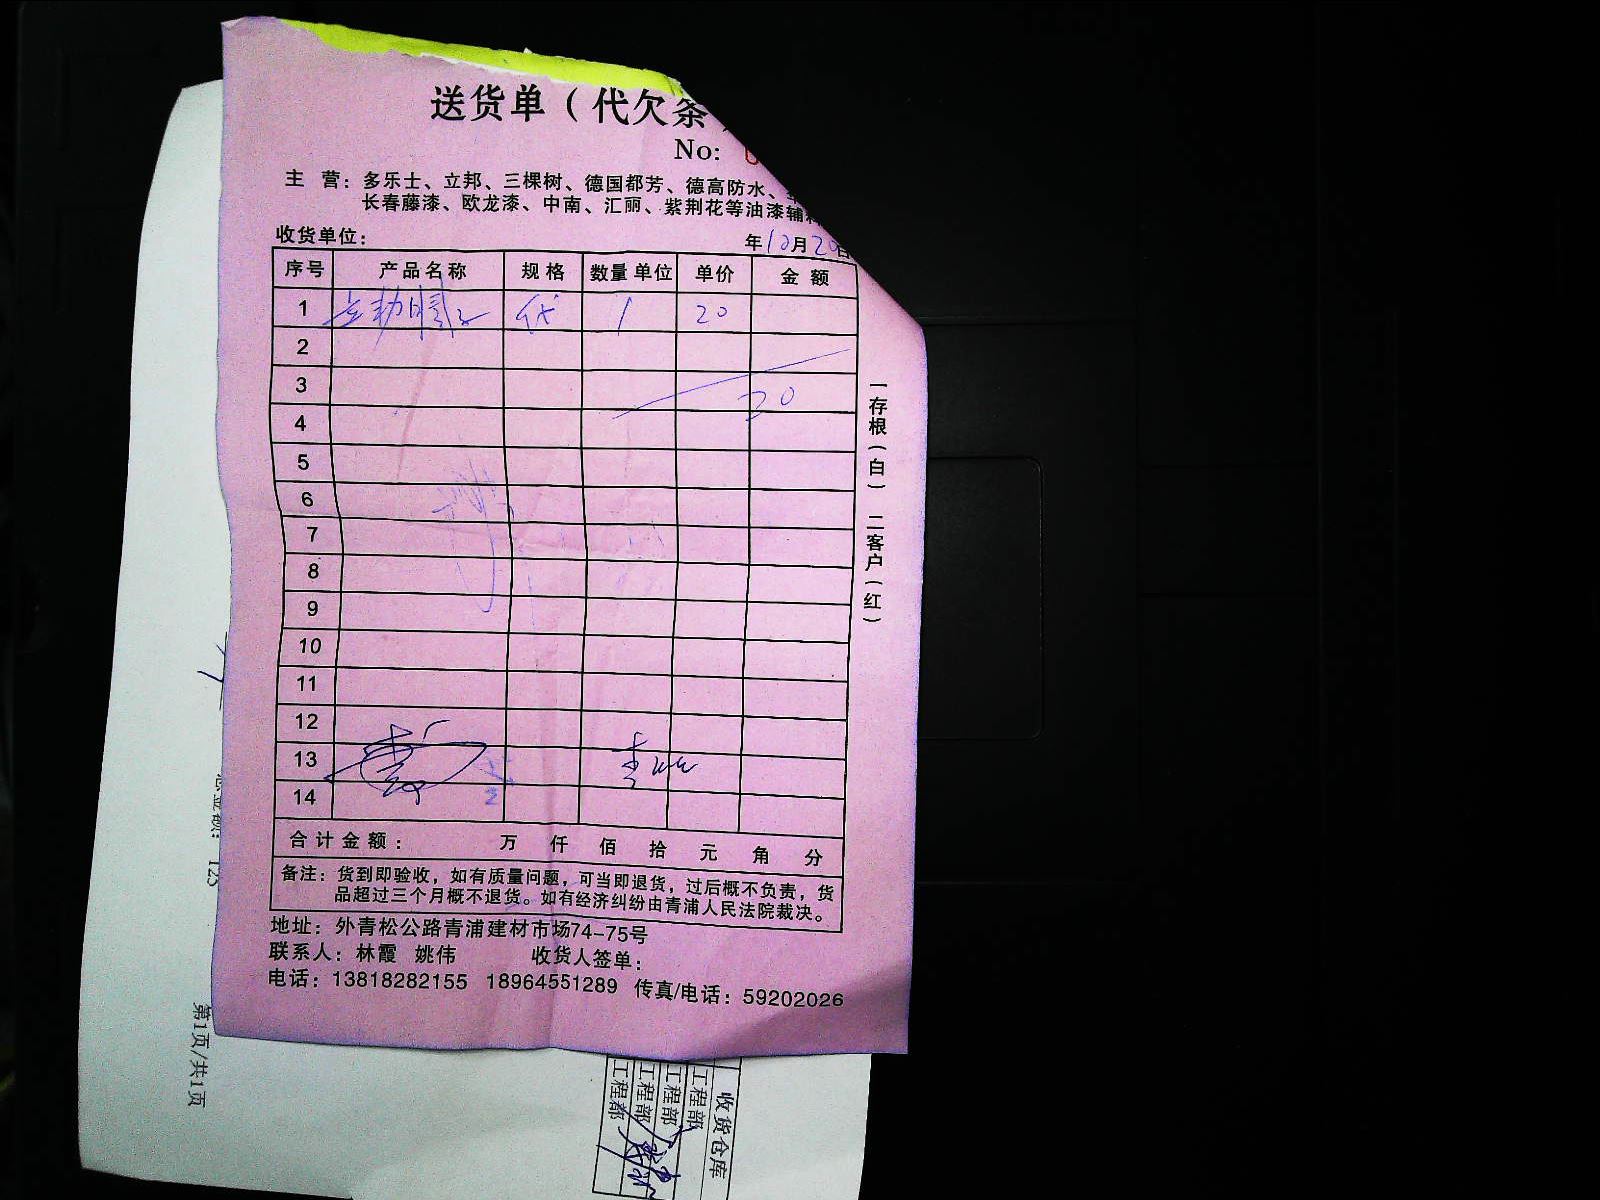 送货单（代欠条
No:
主 营：多乐士、立邦、三棵树、德国都芳、德高防水、
长春藤漆、欧龙漆、中南、汇丽、紫荆花等油漆辅料
收货单位：
年12月20日
序号 产品名称 规格 数量 单位 单价 金额
1 1 20
2
3 20
4
5
6
7
8
9
10
11
12
13
14
合计金额： 万 仟 佰 拾 元 角 分
备注：货到即验收，如有质量问题，可当即退货，过后概不负责，货
品超过三个月概不退货。如有经济纠纷由青浦人民法院裁决。
地址：外青松公路青浦建材市场74-75号
联系人：林霞 姚伟 收货人签单：
电话：13818282155 18964551289 传真/电话：59202026
一存根（白） 二客户（红）
第1页/共1页
收货仓库
工程部
工程部
工程部
工程部